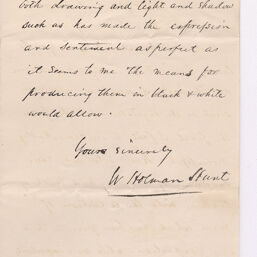 both drawing and light and shadow
such as has made the expression
and sentiment as perfect as
it seems to me the means for
producing them in black & white
would allow.
Yours sincerely
W Holman Hunt